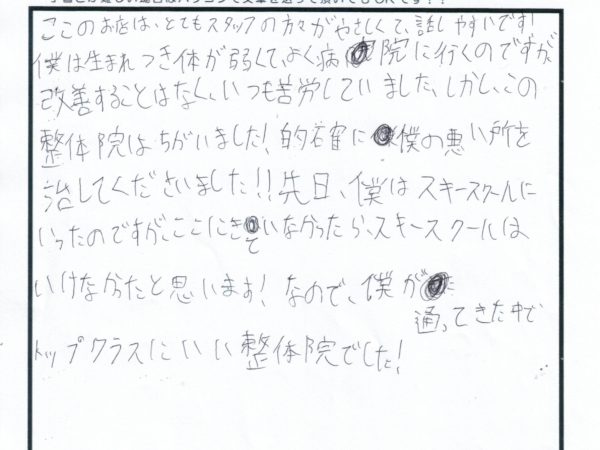 ここのお店は、とてもスタッフの方々がやさしくて、話しやすいです!
僕は生まれつき体が弱くて、よく病院に行くのですが、
改善することはなく、いつも苦労していました、しかし、この
整体院はちがいました!的石窟に僕の悪い所を
治してくださいました!!先日、僕はスキースクールに
いったのですが、ここにきていなかったら、スキースクールは
いけなかったと思います!なので、僕が
通ってきた中で
トップクラスにいい整体院でした!